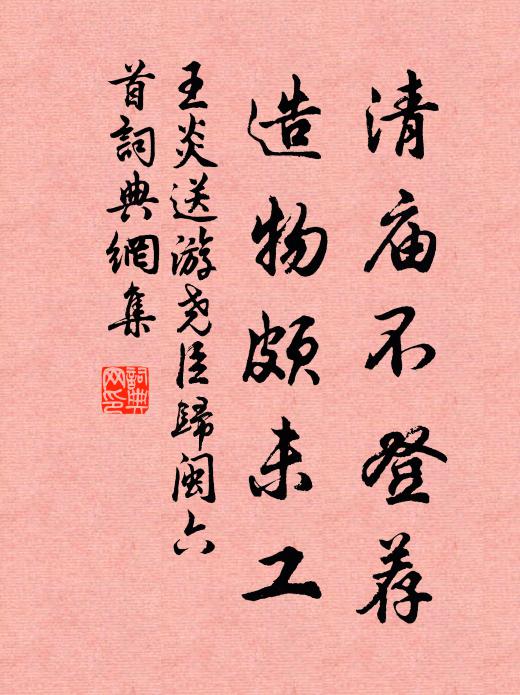 清庙不登荐
造物颇未工
王炎送游尧臣歸闽六
首詞典網集
詞典
网印